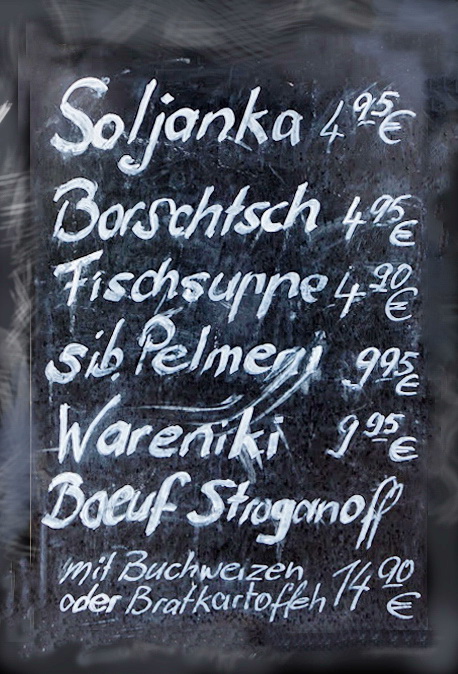 Soljanka 4 95 €
Borschtsch 4 95 €
Fischsuppe 4 90 €
sib. Pelmeni 9 95 €
Wareniki 9 95 €
Boeuf Stroganoff
mit Buchweizen
oder Bratkartoffeln 14 90 €